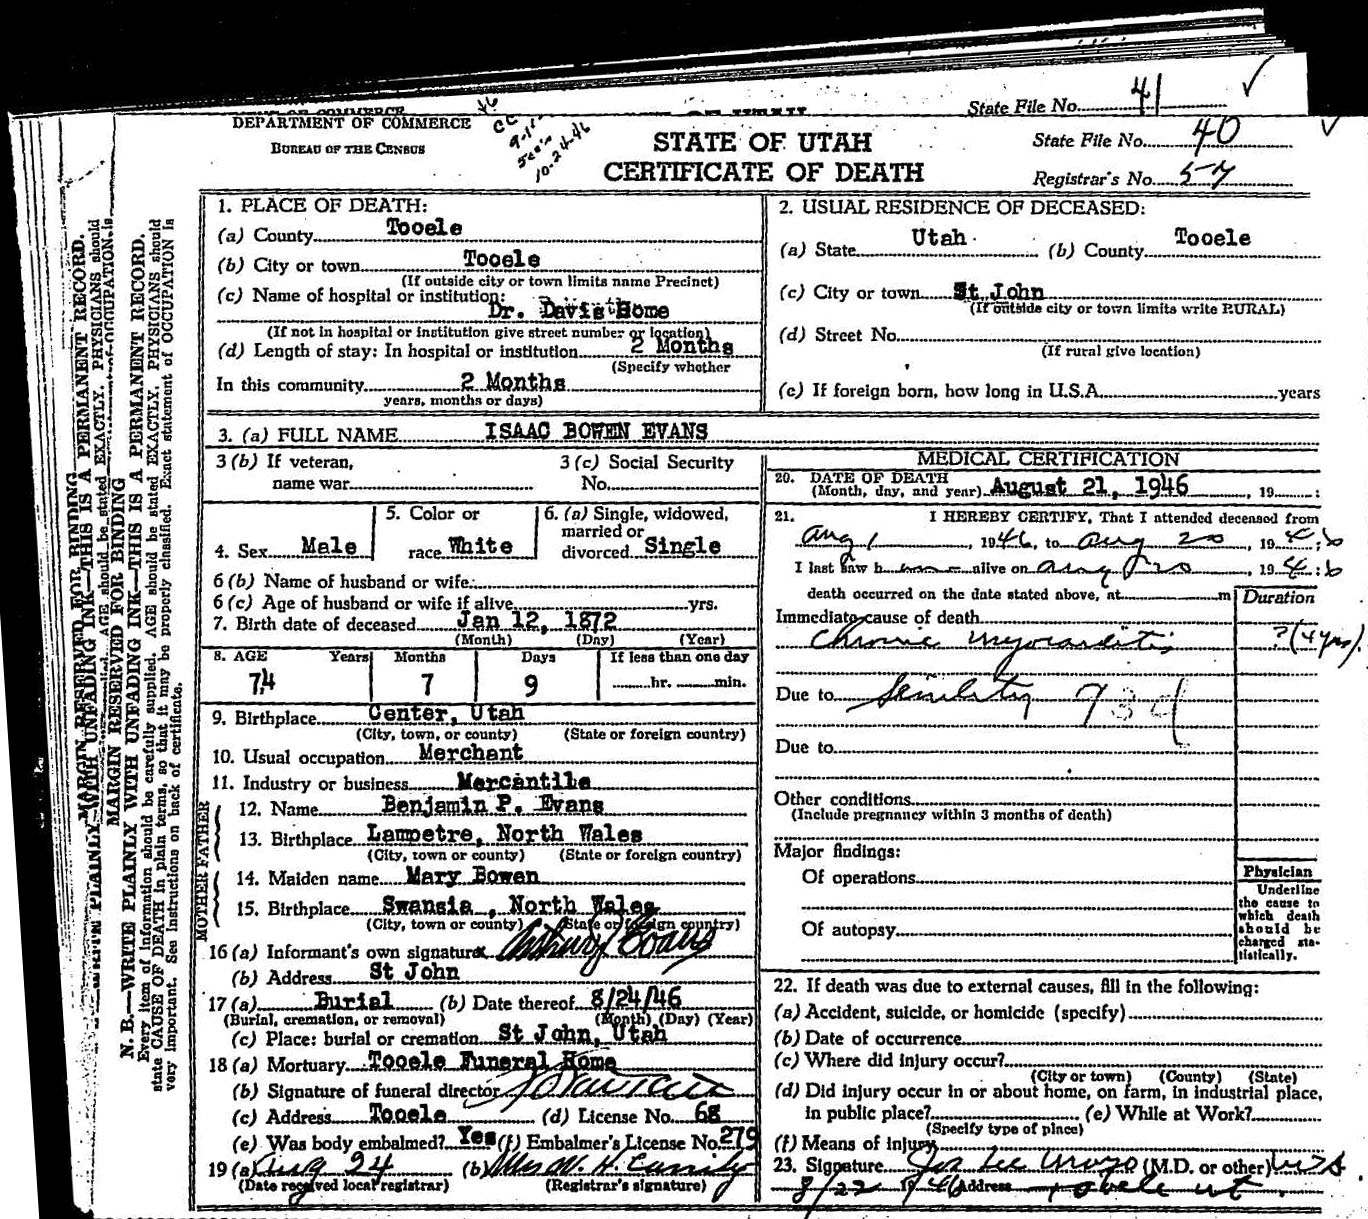 State File No. 41
DEPARTMENT OF COMMERCE
BUREAU OF THE CENSUS
10-24-46
STATE OF UTAH
CERTIFICATE OF DEATH
State File No. 40
Registrar's No. 57
MARGIN RESERVED FOR BINDING
N. B.—WRITE PLAINLY WITH UNFADING INK—THIS IS A PERMANENT RECORD.
Every item of information should be carefully supplied. AGE should be stated EXACTLY. PHYSICIANS should
state CAUSE OF DEATH in plain terms, so that it may be properly classified. Exact statement of OCCUPATION is
very important. See Instructions on back of certificate.
1. PLACE OF DEATH:
(a) County Tooele
(b) City or town Tooele
(If outside city or town limits name Precinct)
(c) Name of hospital or institution:
Dr. Davis Home
(If not in hospital or institution give street number or location)
(d) Length of stay: In hospital or institution 2 Months
(Specify whether
In this community 2 Months
years, months or days)
2. USUAL RESIDENCE OF DECEASED:
(a) State Utah (b) County Tooele
(c) City or town St John
(If outside city or town limits write RURAL)
(d) Street No.
(If rural give location)
(e) If foreign born, how long in U.S.A. years
3. (a) FULL NAME ISAAC BOWEN EVANS
3 (b) If veteran, name war
3 (c) Social Security No.
4. Sex Male
5. Color or race White
6. (a) Single, widowed, married or divorced Single
6 (b) Name of husband or wife
6 (c) Age of husband or wife if alive yrs.
7. Birth date of deceased Jan 12, 1872
(Month) (Day) (Year)
8. AGE Years Months Days If less than one day
74 7 9 hr. min.
9. Birthplace Center, Utah
(City, town, or county) (State or foreign country)
10. Usual occupation Merchant
11. Industry or business Mercantile
FATHER
12. Name Benjamin P. Evans
13. Birthplace Lampetre, North Wales
(City, town or county) (State or foreign country)
MOTHER
14. Maiden name Mary Bowen
15. Birthplace Swansia, North Wales
(City, town or county) (State or foreign country)
16 (a) Informant's own signature x Arthur Evans
(b) Address St John
17 (a) Burial (b) Date thereof 8/24/46
(Burial, cremation, or removal) (Month) (Day) (Year)
(c) Place: burial or cremation St John, Utah
18 (a) Mortuary Tooele Funeral Home
(b) Signature of funeral director
(c) Address Tooele (d) License No. 68
(e) Was body embalmed? Yes (f) Embalmer's License No. 279
19 (a) Aug 24 (b) Mrs W. H.
(Date received local registrar) (Registrar's signature)
MEDICAL CERTIFICATION
20. DATE OF DEATH
(Month, day, and year) August 21, 1946, 19 :
21. I HEREBY CERTIFY, That I attended deceased from
Aug 1, 1946, to Aug 20, 1946
I last saw h im alive on Aug 20, 1946
death occurred on the date stated above, at m
Duration
Immediate cause of death
Chronic myocarditis ? (4 yrs).
Due to Senility 93d
Due to
Other conditions
(Include pregnancy within 3 months of death)
Major findings:
Of operations
Of autopsy
Physician
Underline
the cause to
which death
should be
charged sta-
tistically.
22. If death was due to external causes, fill in the following:
(a) Accident, suicide, or homicide (specify)
(b) Date of occurrence
(c) Where did injury occur?
(City or town) (County) (State)
(d) Did injury occur in or about home, on farm, in industrial place,
in public place? (e) While at Work?
(Specify type of place)
(f) Means of injury
23. Signature Lee (M.D. or other)
8/22 1946 Address Tooele Ut.